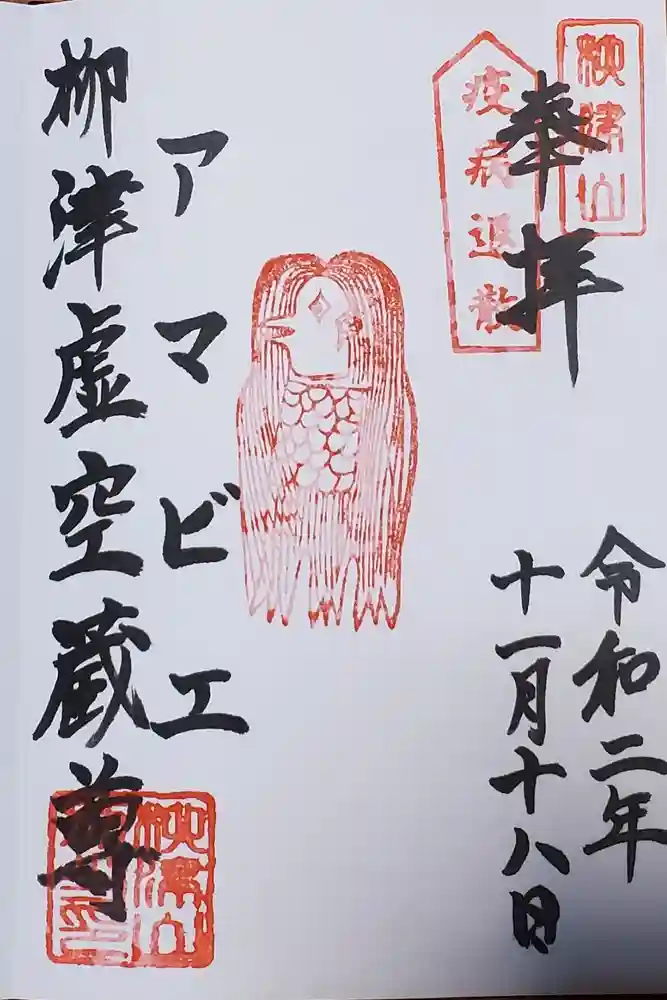 奉拝
疫病退散
令和二年
十一月十八日
アマビエ
柳津虚空蔵尊